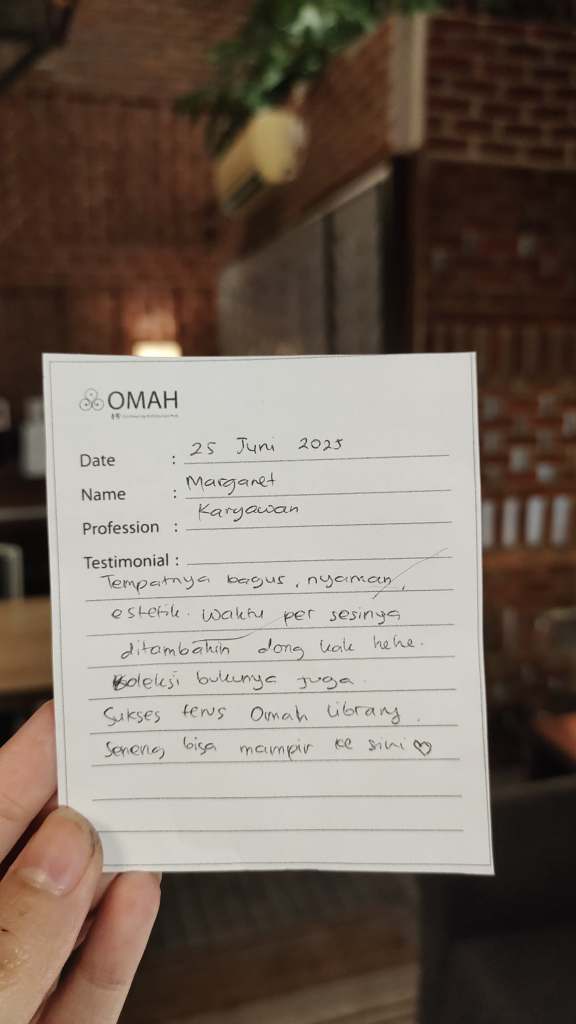 OMAH
Date : 25 Juni 2025
Name : Margaret
Profession : Karyawan
Testimonial :
Tempatnya bagus, nyaman,
estetik. Waktu per sesinya
ditambahin dong kak hehe.
Koleksi bukunya juga.
Sukses terus Omah Library.
Seneng bisa mampir ke sini ♡